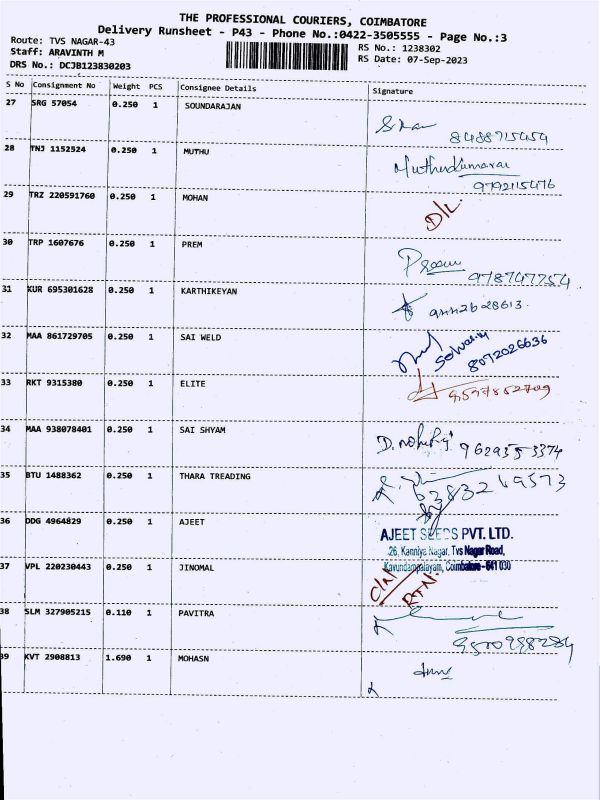 THE PROFESSIONAL COURIERS, COIMBATORE
Delivery Runsheet - P43 - Phone No.:0422-3505555 - Page No.:3
Route: TVS NAGAR-43
RS No.: 1238302
Staff: ARAVINTH M
RS Date: 07-Sep-2023
DRS No.: DCJB123830203
S No Consignment No Weight PCS Consignee Details Signature
27 SRG 57054 0.250 1 SOUNDARAJAN
28 TNJ 1152524 0.250 1 MUTHU
Muthukumaran
9792115476
29 TRZ 220591760 0.250 1 MOHAN
D/L
30 TRP 1607676 0.250 1 PREM
Preem
9787477254
31 KUR 695301628 0.250 1 KARTHIKEYAN
32 MAA 861729705 0.250 1 SAI WELD
8072026636
33 RKT 9315380 0.250 1 ELITE
34 MAA 938078401 0.250 1 SAI SHYAM
9629353374
35 BTU 1488362 0.250 1 THARA TREADING
6383269573
36 DDG 4964829 0.250 1 AJEET
AJEET SEEDS PVT. LTD.
26, Kanniya Nagar, Tvs Nagar Road,
Kavundampalayam, Coimbatore - 641 030
37 VPL 220230443 0.250 1 JINOMAL
C/N
RTN
38 SLM 327905215 0.110 1 PAVITRA
39 KVT 2908813 1.690 1 MOHASN